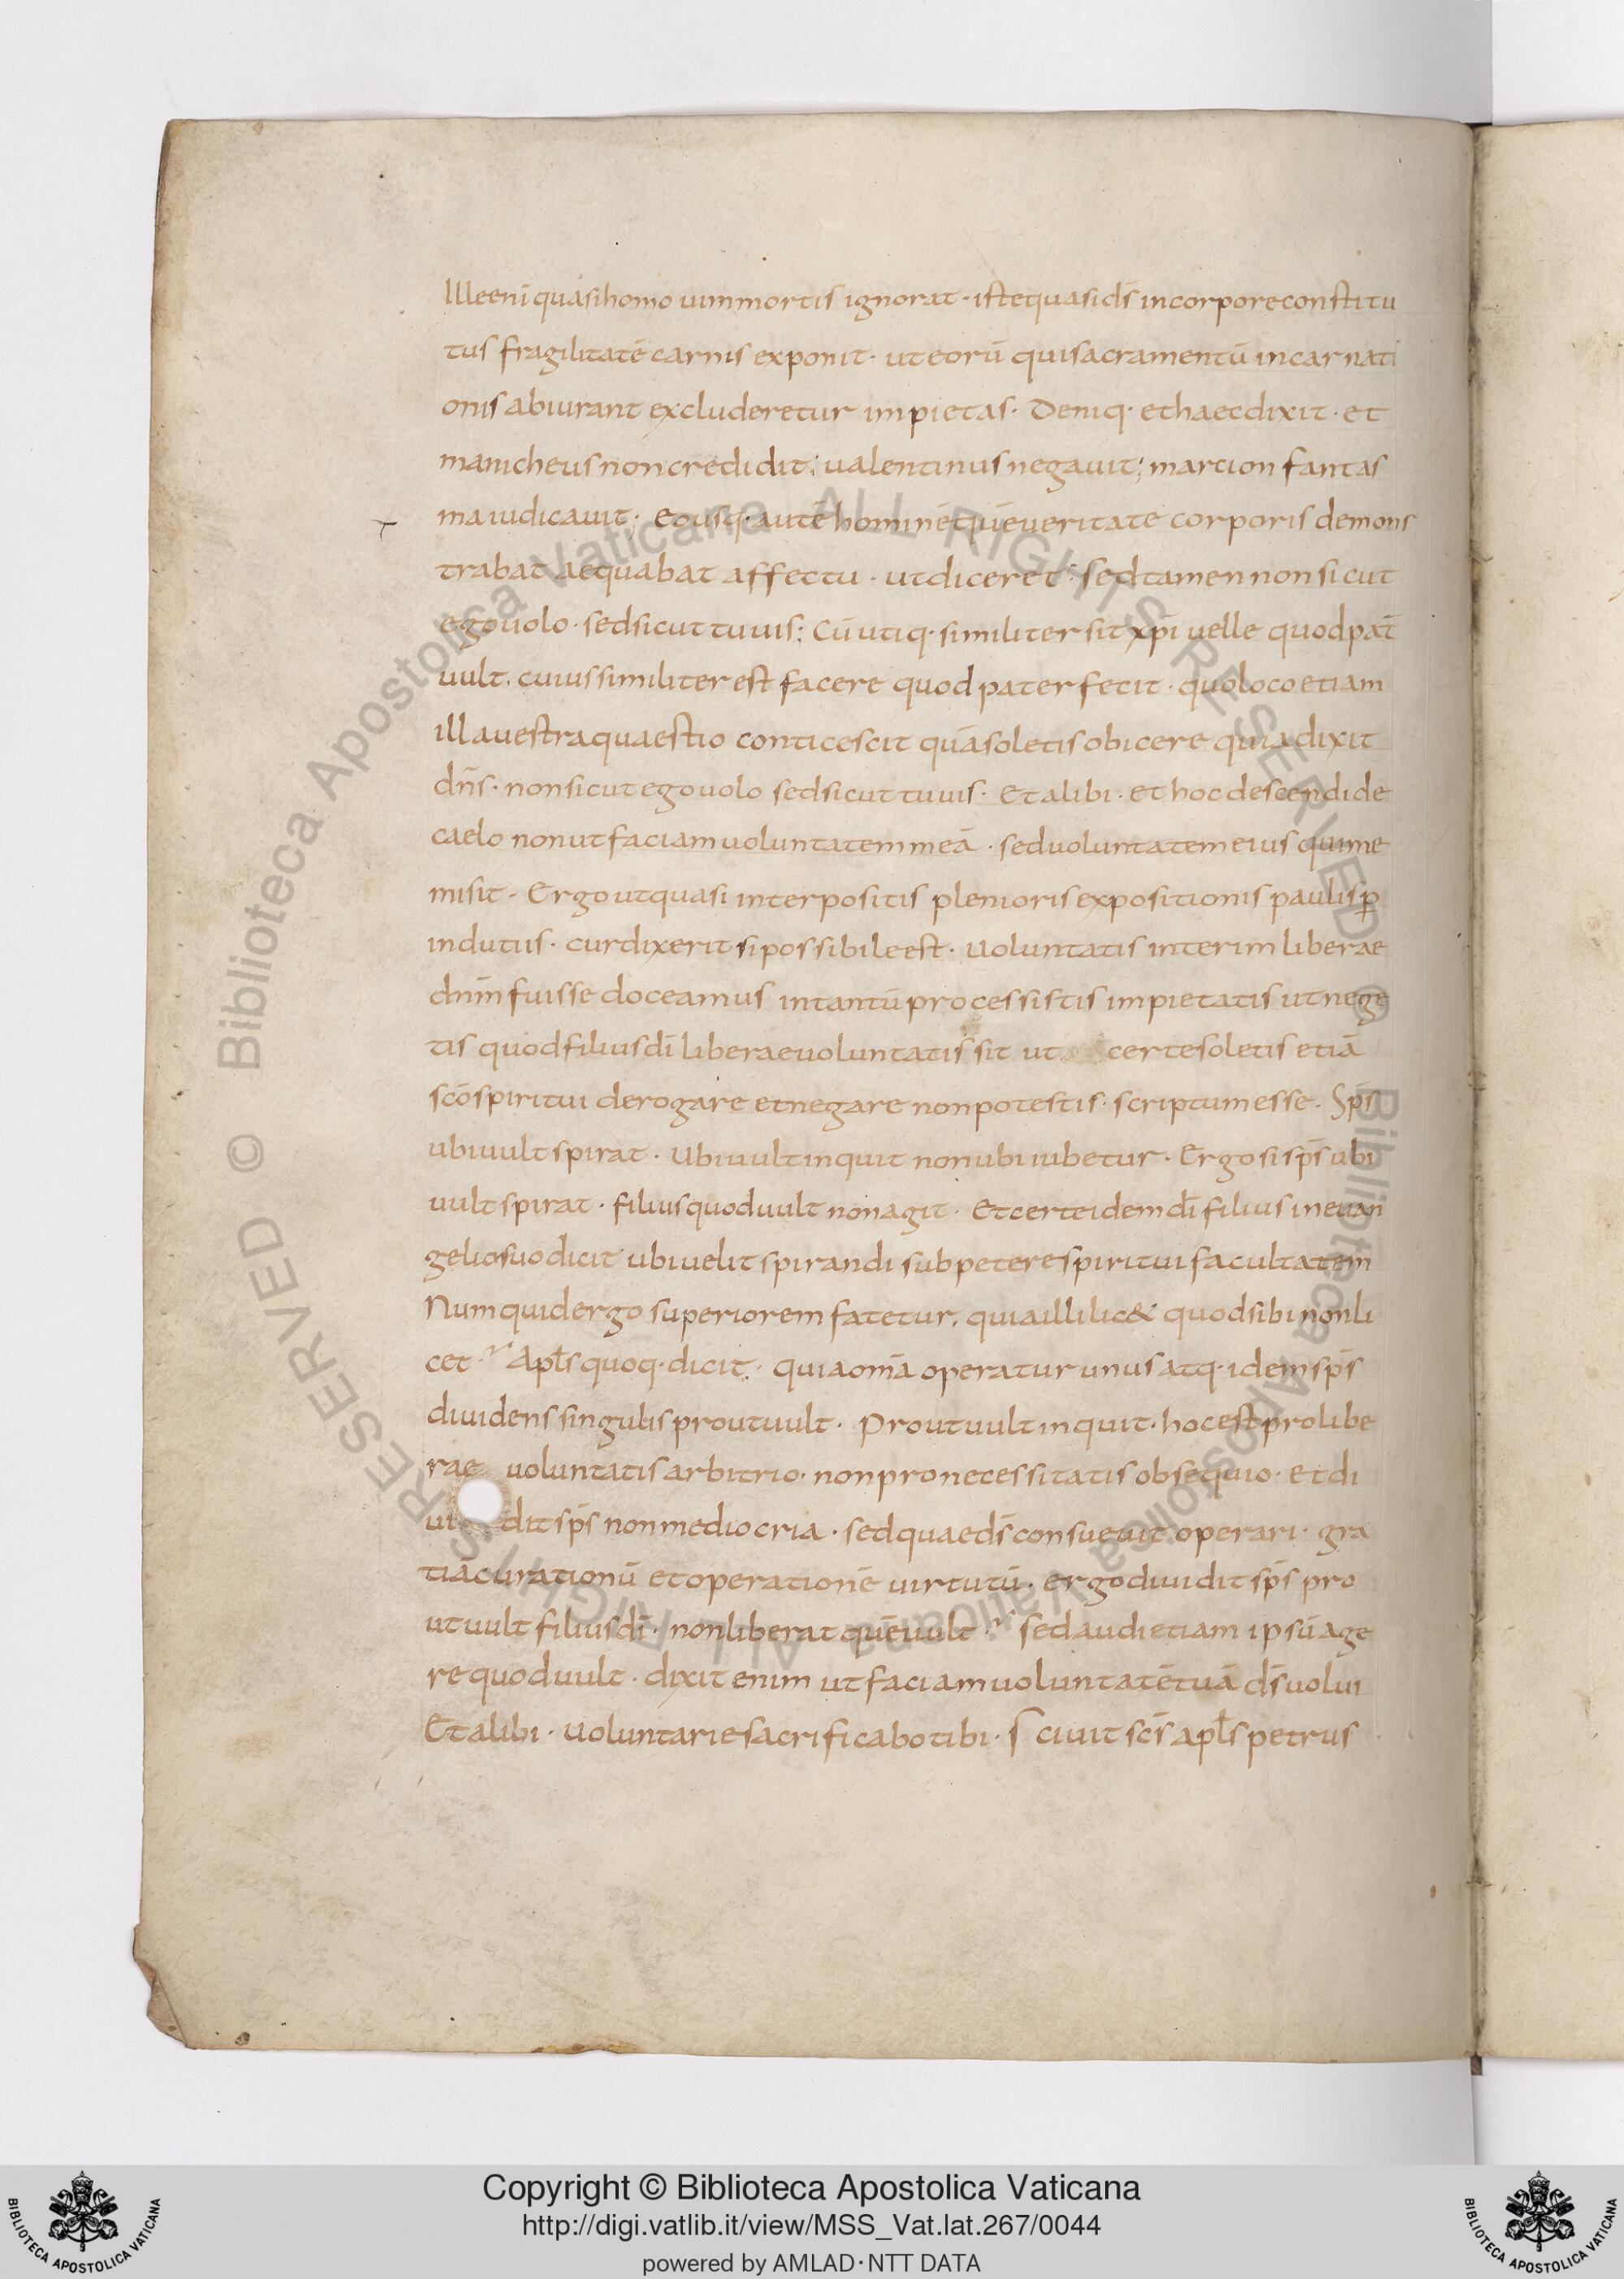 Illeenī quasi homo uim mortis ignorat · iste quasi d̄s in corpore constitu
tus fragilitatē carnis exponit · ut eorū qui sacramentū incarnati
onis abiurant excluderetur impietas · Deniq· et haec dixit · et
manicheus non credidit; ualentinus negauit; marcion fantas
ma iudicauit; Eousq· autē hominē quē ueritate corporis demons
trabat aequabat affectu · ut diceret; sed tamen non sicut
ego uolo · sed sicut tu uis; Cū utiq· similiter sit xp̄i uelle quod pat̄
uult · cuius similiter est facere quod pater fecit · quo loco etiam
illa uestra quaestio conticescit quā soletis obicere quia dixit
dn̄s · non sicut ego uolo sed sicut tu uis · Et alibi · et hoc descendi de
caelo non ut faciam uoluntatem meā · sed uoluntatem eius qui me
misit · Ergo ut quasi interpositis plenioris expositionis paulisp̄
indutiis · cur dixerit si possibile est · uoluntatis interim liberae
dn̄m fuisse doceamus in tantū processistis impietatis ut nege
tis quod filius dī liberae uoluntatis sit ut certe soletis etiā
sc̄o spiritui derogare et negare non potestis · scriptum esse · Sp̄s
ubi uult spirat · Ubi uult inquit non ubi iubetur · Ergo si sp̄s ubi
uult spirat · filius quod uult non agit · Et certe idem dī filius in euan
gelio suo dicit ubi uelit spirandi subpetere spiritui facultatem
Numquid ergo superiorem fatetur, quia illi lic& quod sibi non li
cet? Apl̄s quoq· dicit; quia om̄a operatur unus atq· idem sp̄s
diuidens singulis prout uult · Prout uult inquit · hoc est pro libe
rae uoluntatis arbitrio · non pro necessitatis obsequio · Et di
ui dit sp̄s non mediocria · sed quae d̄s consueuit operari · gra
tiā curationū et operationē uirtutū · ergo diuidit sp̄s pro
ut uult filius dī · non liberat quē uult? sed audi etiam ipsū age
re quod uult · dixit enim ut faciam uoluntatē tuā d̄s uolui
Et alibi · uoluntarie sacrificabo tibi · Sciuit sc̄s apl̄s petrus
Copyright © Biblioteca Apostolica Vaticana
http://digi.vatlib.it/view/MSS_Vat.lat.267/0044
powered by AMLAD·NTT DATA